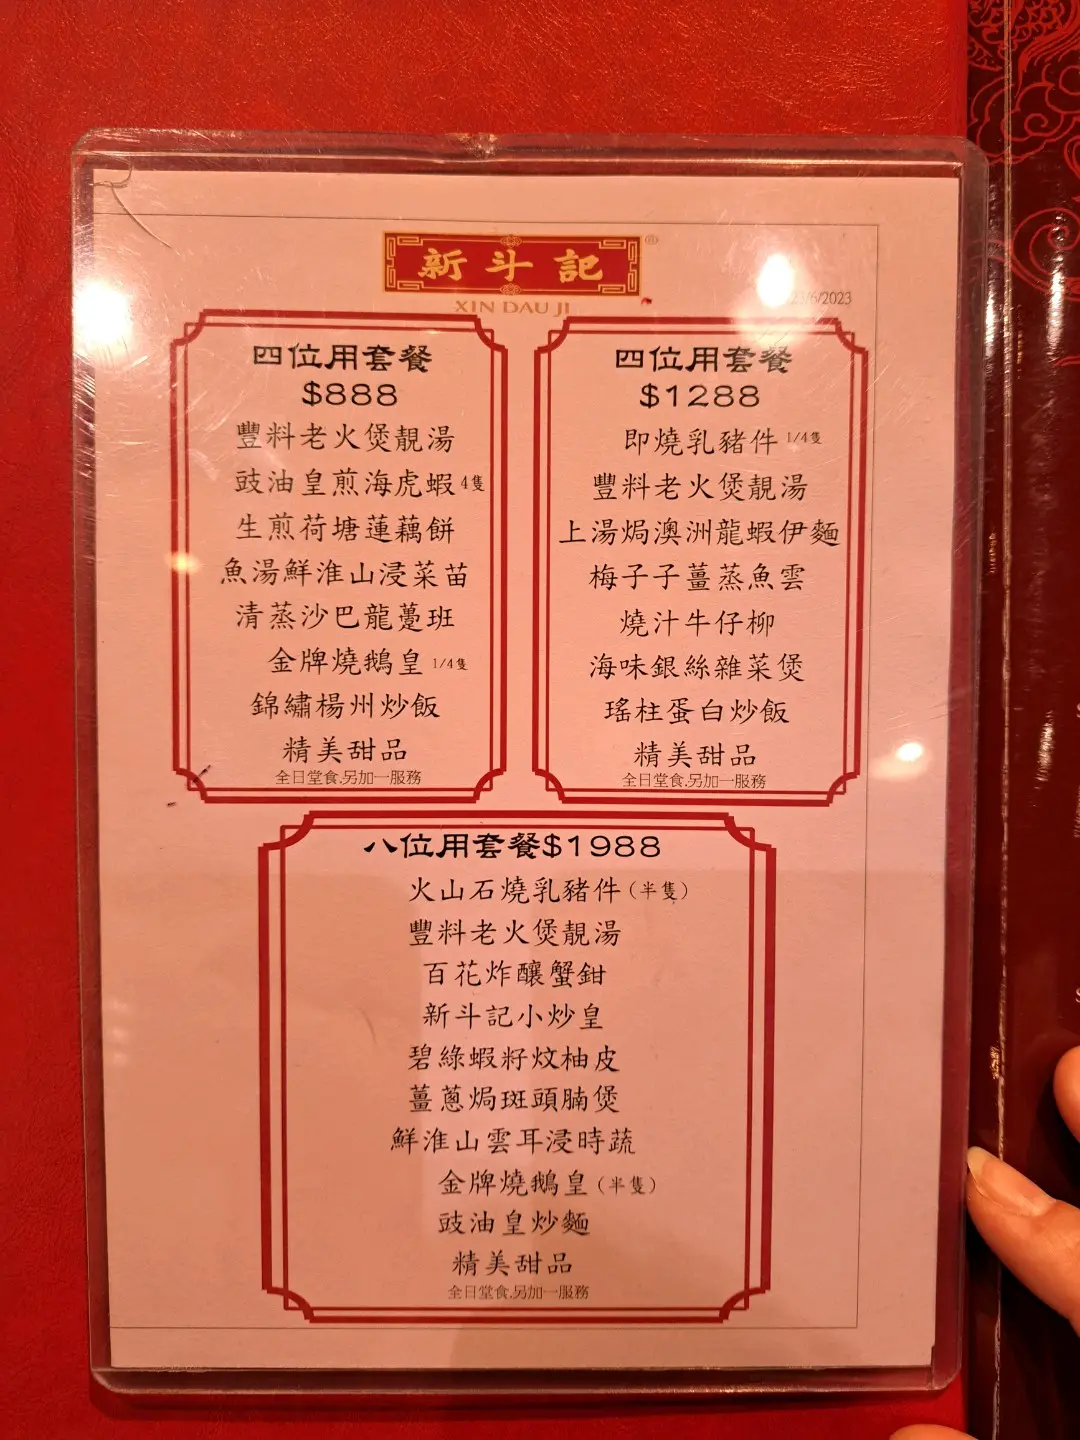 新斗記
®
XIN DAU JI
23/6/2023
四位用套餐
$888
豐料老火煲靚湯
豉油皇煎海虎蝦 4隻
生煎荷塘蓮藕餅
魚湯鮮淮山浸菜苗
清蒸沙巴龍躉班
金牌燒鵝皇 1/4隻
錦繡楊州炒飯
精美甜品
全日堂食,另加一服務
四位用套餐
$1288
即燒乳豬件 1/4隻
豐料老火煲靚湯
上湯焗澳洲龍蝦伊麵
梅子子薑蒸魚雲
燒汁牛仔柳
海味銀絲雜菜煲
瑤柱蛋白炒飯
精美甜品
全日堂食,另加一服務
八位用套餐$1988
火山石燒乳豬件(半隻)
豐料老火煲靚湯
百花炸釀蟹鉗
新斗記小炒皇
碧綠蝦籽炆柚皮
薑蔥焗斑頭腩煲
鮮淮山雲耳浸時蔬
金牌燒鵝皇(半隻)
豉油皇炒麵
精美甜品
全日堂食,另加一服務